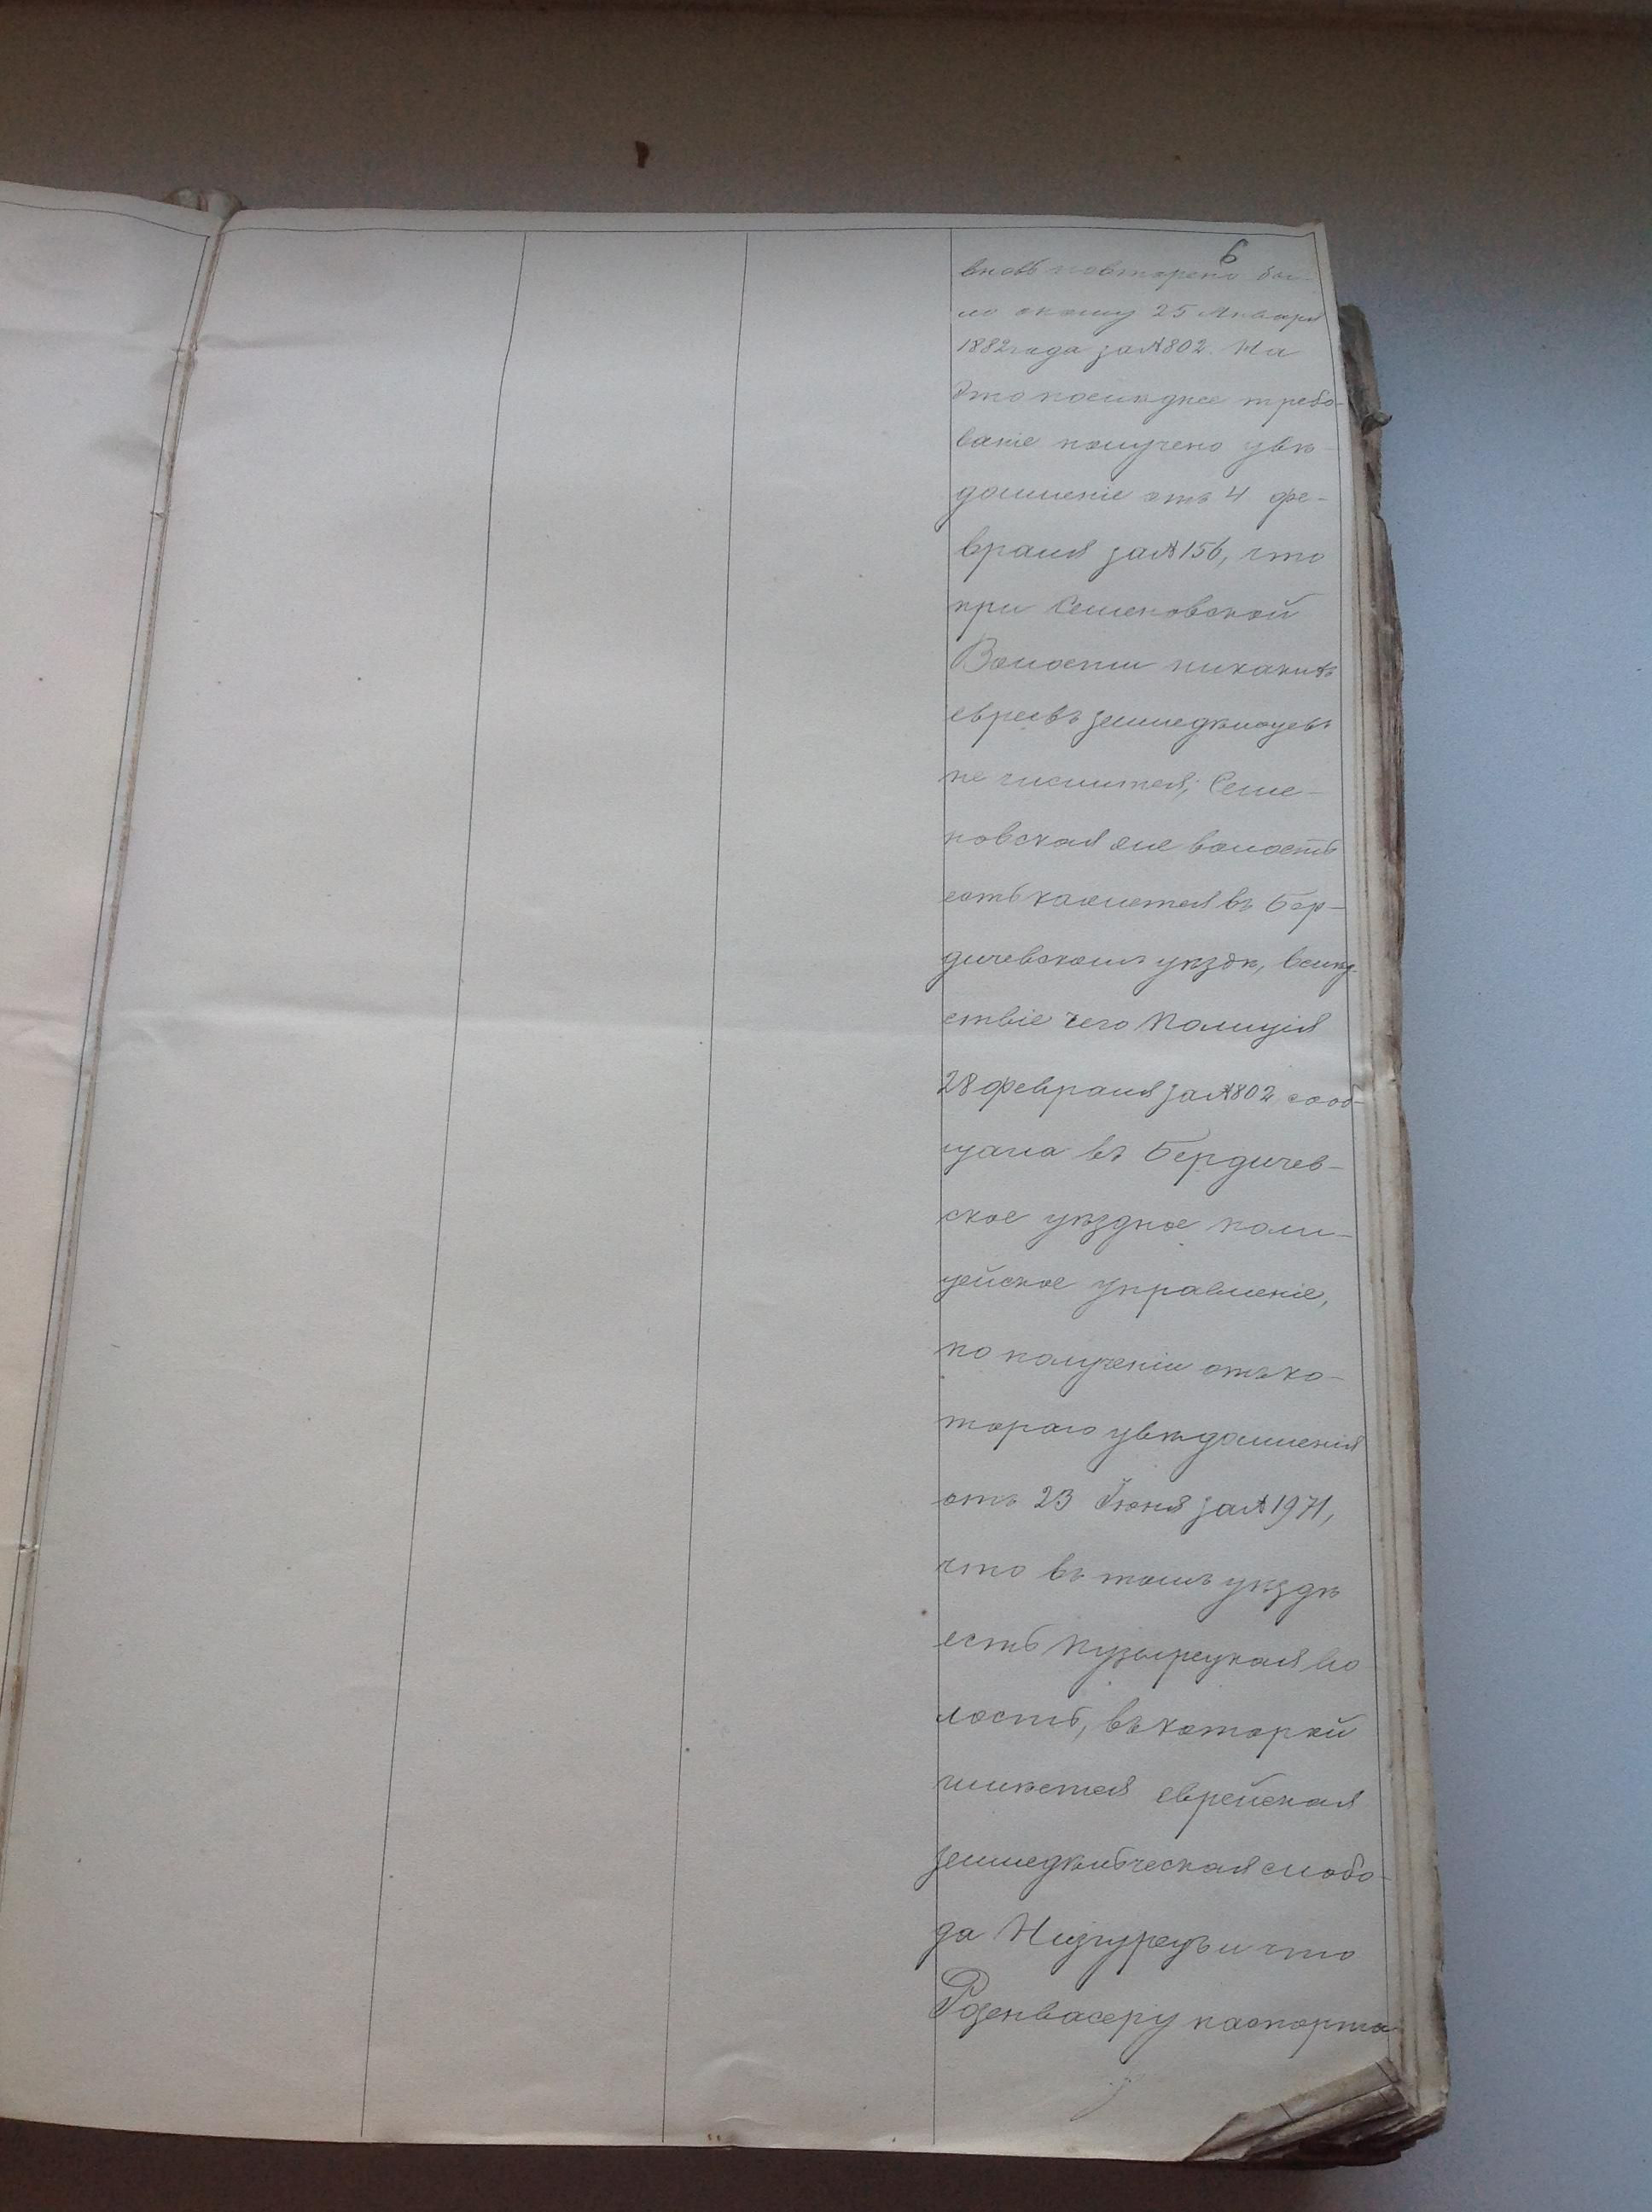 6
вновь повторено бы-
ло оному 25 Января
1882 года за № 802. На
это последнее требо-
ваніе получено увѣ-
домленіе отъ 4 фе-
враля за № 156, что
при Семеновской
Волости никакихъ
евреевъ земледѣльцевъ
не числится; Семе-
новская же волость
есть кажется въ Бер-
дичевскомъ уѣздѣ, вслѣд-
ствіе чего Полиція
28 февраля за № 802 сооб-
щала въ Бердичев-
ское уѣздное поли-
цейское управленіе,
по полученіи отъ ко-
тораго увѣдомленія
отъ 23 Іюня за № 1971,
что въ томъ уѣздѣ
есть Пузырецкая во
лость, въ которой
имѣется еврейская
земледѣльческая слобо-
да Низгурецъ и что
Розенвасеру паспорта